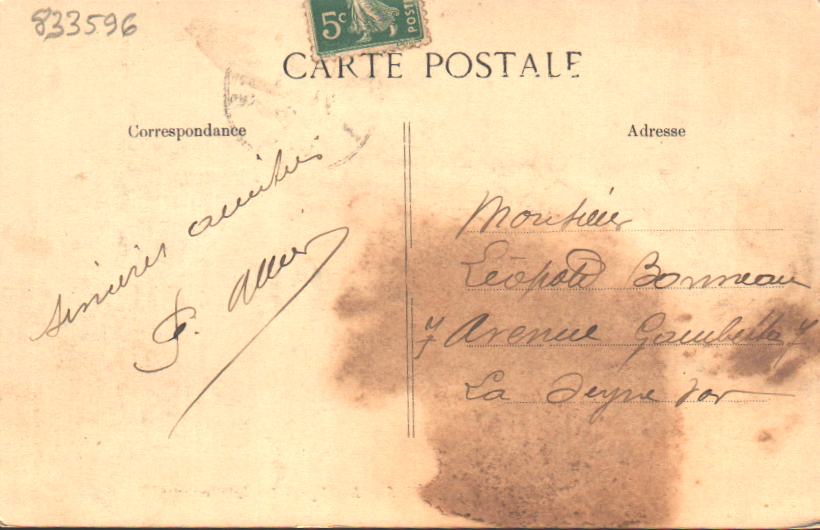 833596
5c
POST
CARTE POSTALE
Correspondance
Adresse
sincères amitiés
Monsieur
Léopold Bonneau
7 Avenue Gambetta 7
La Seyne Var